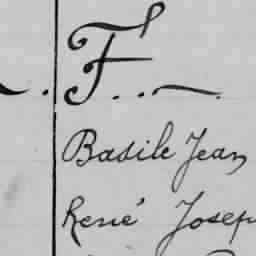 F...
Basile Jean
René Josep